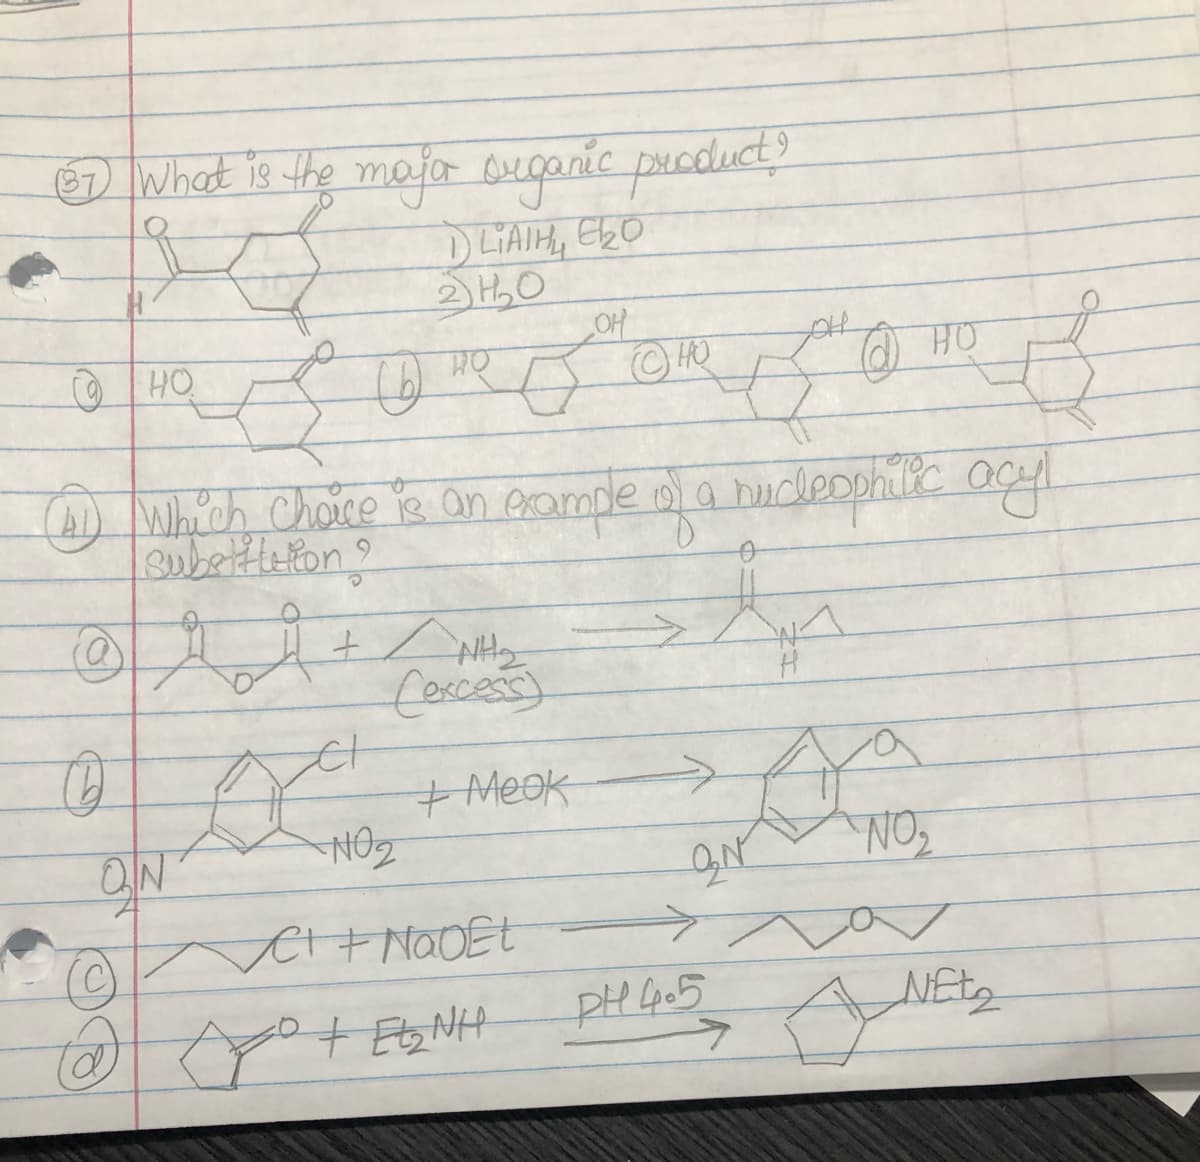 37 What is the major organic product?
O O 1) LiAlH4 Et2O
H 2) H2O
a HO O b HO OH c HO OH d HO O
41 Which choice is an example of a nucleophilic acyl
substitution?
a O O O + NH2 → O N H
(excess)
b Cl NO2 O2N + MeOK → O NO2 O2N
c Cl + NaOEt → O
d O + Et2NH PH 4.5 → NEt2